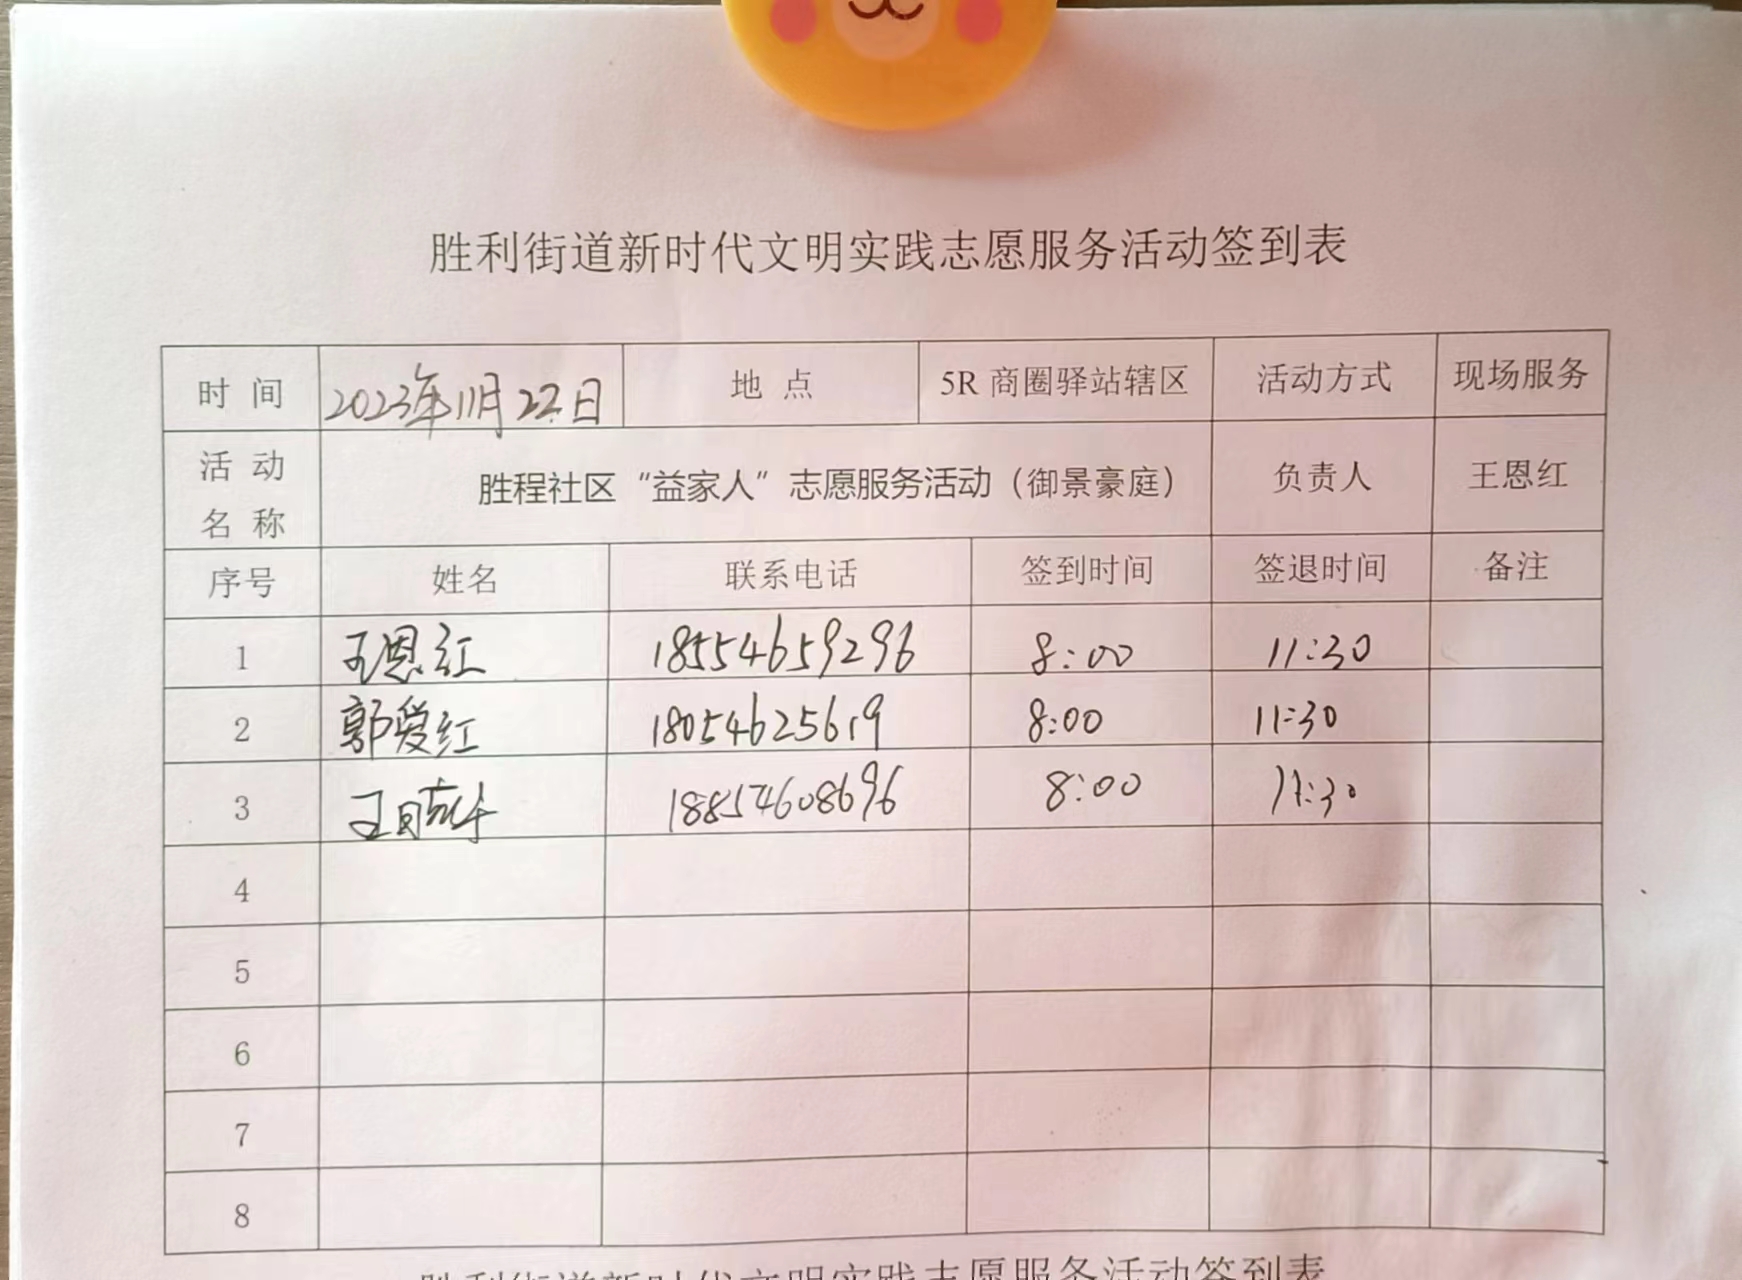 胜利街道新时代文明实践志愿服务活动签到表
时 间 2023年11月22日 地 点 5R 商圈驿站辖区 活动方式 现场服务
活 动 名 称 胜程社区“益家人”志愿服务活动（御景豪庭） 负责人 王恩红
序号 姓名 联系电话 签到时间 签退时间 备注
1 王恩红 18554659296 8:00 11:30
2 郭爱红 18054625619 8:00 11:30
3 18854608696 8:00 11:30
4
5
6
7
8
胜利街道新时代文明实践志愿服务活动签到表